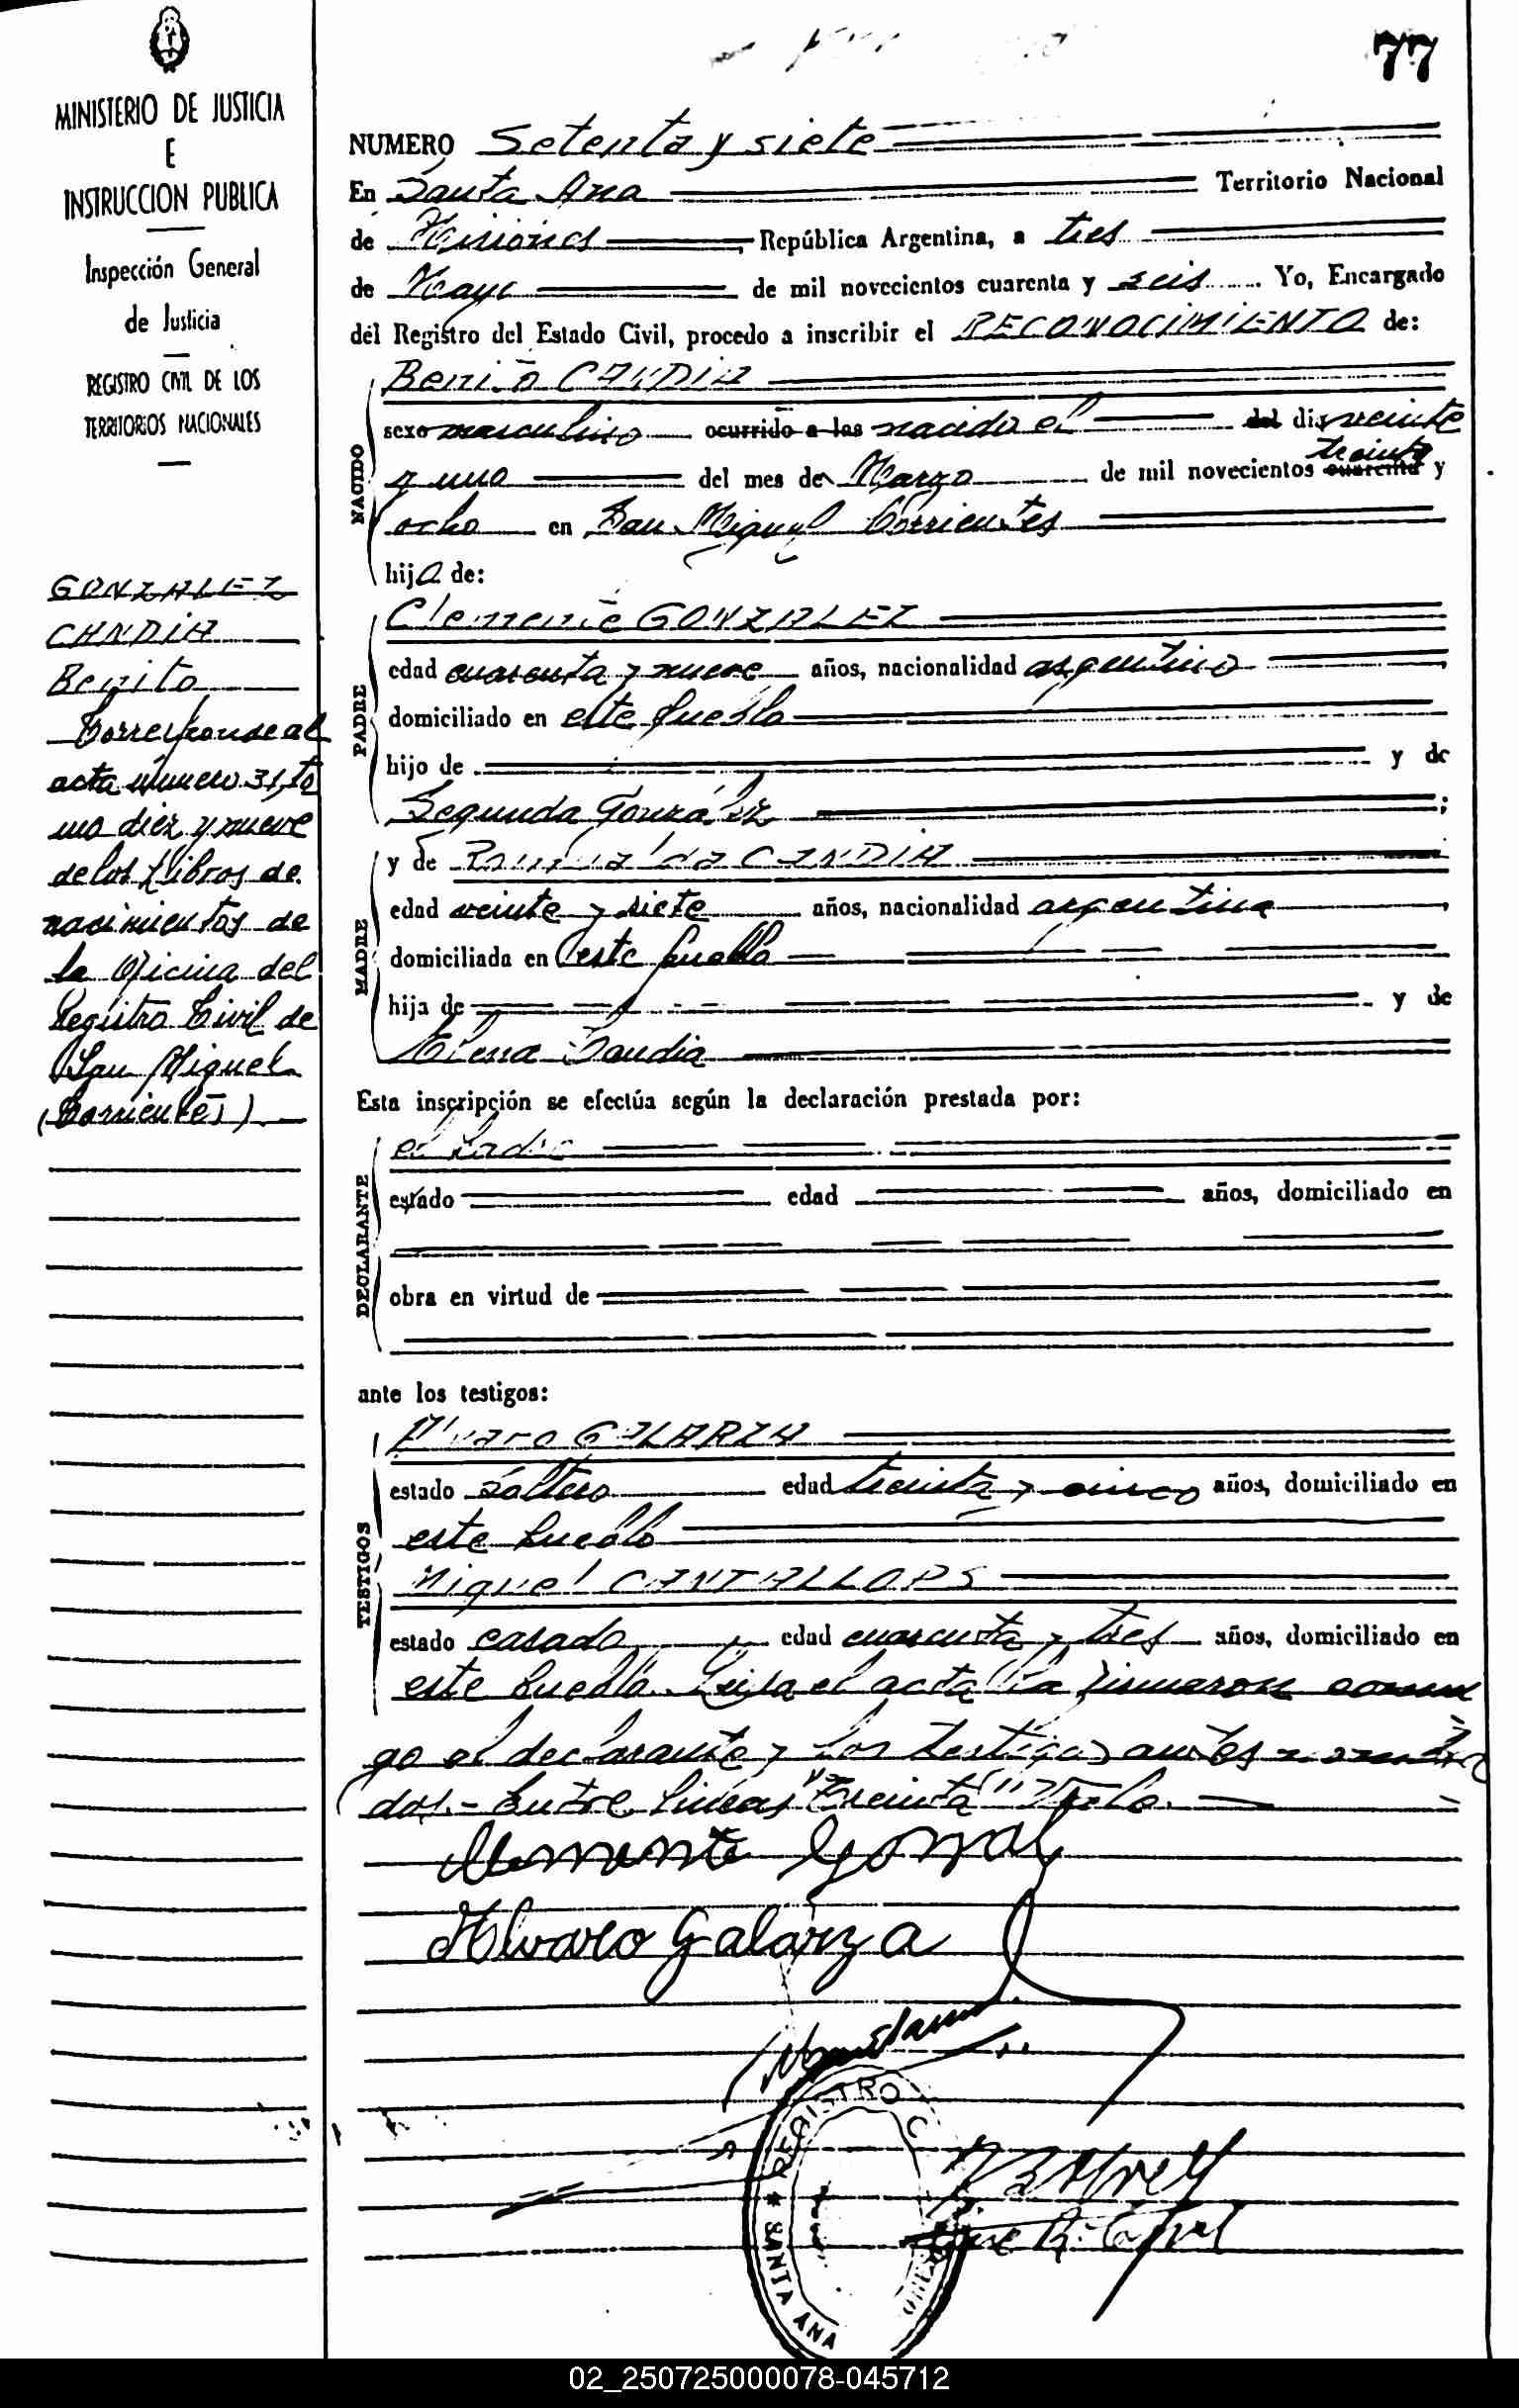 77
MINISTERIO DE JUSTICIA
E
INSTRUCCION PUBLICA
Inspección General
de Justicia
REGISTRO CIVIL DE LOS
TERRITORIOS NACIONALES
GONZALEZ
CANDIA
Benito
Corresponde al
acta número 31, to
mo diez y nueve
de los Libros de
nacimientos de
la Oficina del
Registro Civil de
San Miguel
(Corrientes).
NUMERO Setenta y siete
En Santa Ana Territorio Nacional
de Misiones, República Argentina, a tres
de Mayo de mil novecientos cuarenta y seis. Yo, Encargado
del Registro del Estado Civil, procedo a inscribir el RECONOCIMIENTO de:
NACIDO
Benito CANDIA
sexo masculino ocurrido a las nacido el del día veinte
treinta
y uno del mes de Marzo de mil novecientos cuarenta y
ocho en San Miguel Corrientes
hijo de:
PADRE
Clemente GONZALEZ
edad cuarenta y nueve años, nacionalidad argentino
domiciliado en este pueblo
hijo de y de
Segunda González;
MADRE
y de CANDIA
edad veinte y siete años, nacionalidad argentina
domiciliada en este pueblo
hija de y de
Elena Candia
Esta inscripción se efectúa según la declaración prestada por:
DECLARANTE
el Padre
estado edad años, domiciliado en
obra en virtud de
ante los testigos:
TESTIGOS
Alvaro GALARZA
estado soltero edad treinta y cinco años, domiciliado en
este pueblo
Miguel CANTALLOPS
estado casado edad cuarenta y tres años, domiciliado en
este pueblo. Leída el acta la firmaron conmi
go el declarante y los testigos antes nombra
dos.- Entre líneas "treinta" Vale.
Clemente Gonzal
Alvaro Galarza
REGISTRO C
SANTA ANA
02_250725000078-045712